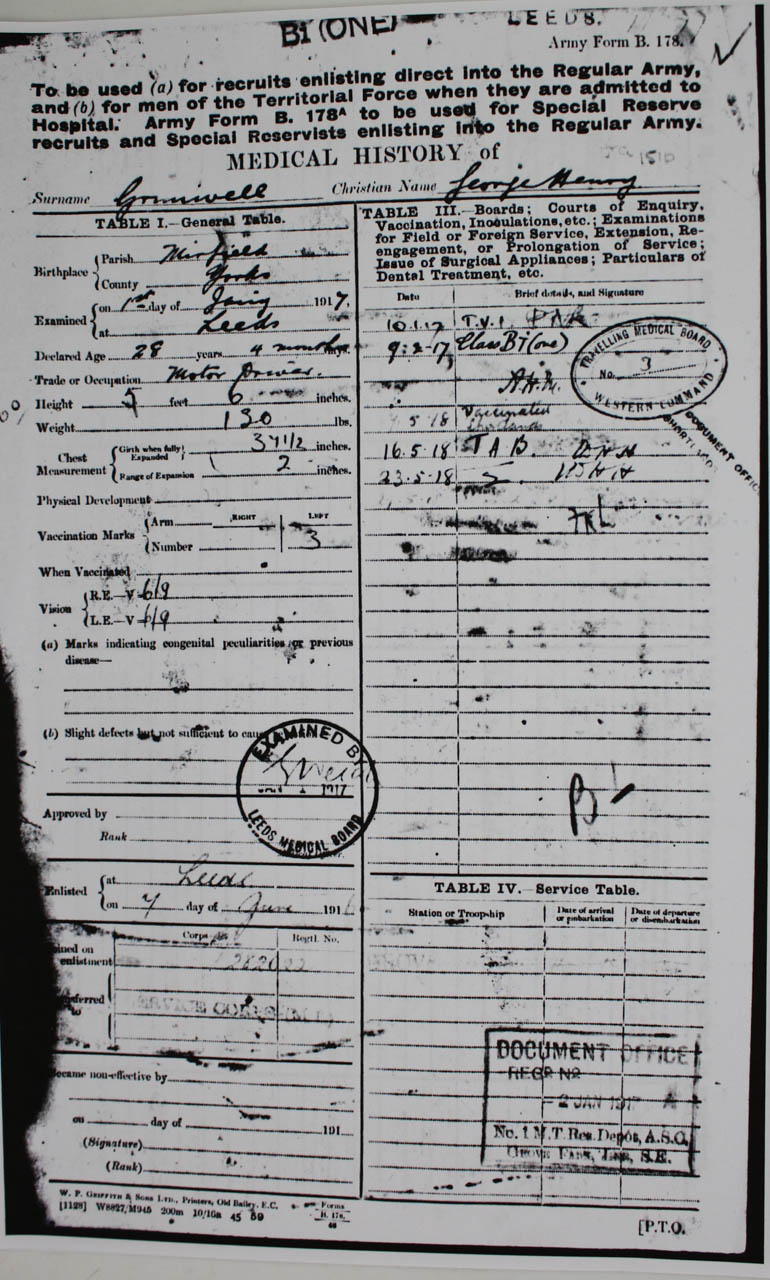 Bi (ONE)
LEEDS.
Army Form B. 178.
To be used (a) for recruits enlisting direct into the Regular Army,
and (b) for men of the Territorial Force when they are admitted to
Hospital. Army Form B. 178A to be used for Special Reserve
recruits and Special Reservists enlisting into the Regular Army.
1510
MEDICAL HISTORY of
Surname Christian Name George Henry
TABLE I.—General Table.
Birthplace { Parish Mirfield
County Yorks
Examined { on 1st day of 1917.
at Leeds
Declared Age 28 years 4 months days.
Trade or Occupation Motor Driver.
Height 5 feet 6 inches.
Weight 130 lbs.
Chest Measurement { Girth when fully Expanded 37 1/2 inches.
Range of Expansion 2 inches.
Physical Development
RIGHT LEFT
Vaccination Marks { Arm
Number 3
When Vaccinated
Vision { R.E.—V 6/9
L.E.—V 6/9
(a) Marks indicating congenital peculiarities or previous
disease—
(b) Slight defects but not sufficient to
EXAMINED BY
JAN 1 1917
LEEDS MEDICAL BOARD
Approved by
Rank
Enlisted { at Leeds
on 7 day of June 1916
Corps Regtl. No.
enlistment
SERVICE CORPS
became non-effective by
on day of 191
(Signature)
(Rank)
W. P. GRIFFITH & SONS LTD., Printers, Old Bailey, E.C.
[1128] W8827/M945 200m 10/16a 45 59
Forms
B. 178.
TABLE III.—Boards; Courts of Enquiry,
Vaccination, Inoculations, etc.; Examinations
for Field or Foreign Service, Extension, Re-
engagement, or Prolongation of Service;
Issue of Surgical Appliances; Particulars of
Dental Treatment, etc.
Date Brief details, and Signature
10.1.17 T.V.I.
9.2.17 Class Bi (one)
TRAVELLING MEDICAL BOARD
No. 3
WESTERN COMMAND
DOCUMENT OFFICE
5-18 Vaccinated
16.5.18 T A B.
23.5.18
B1
TABLE IV.—Service Table.
Station or Troopship
Date of arrival or embarkation
Date of departure or disembarkation
DOCUMENT OFFICE
REGR No
2 JAN 1917
No. 1 M.T. Res. Depôt, A.S.C.
S.E.
[P.T.O.